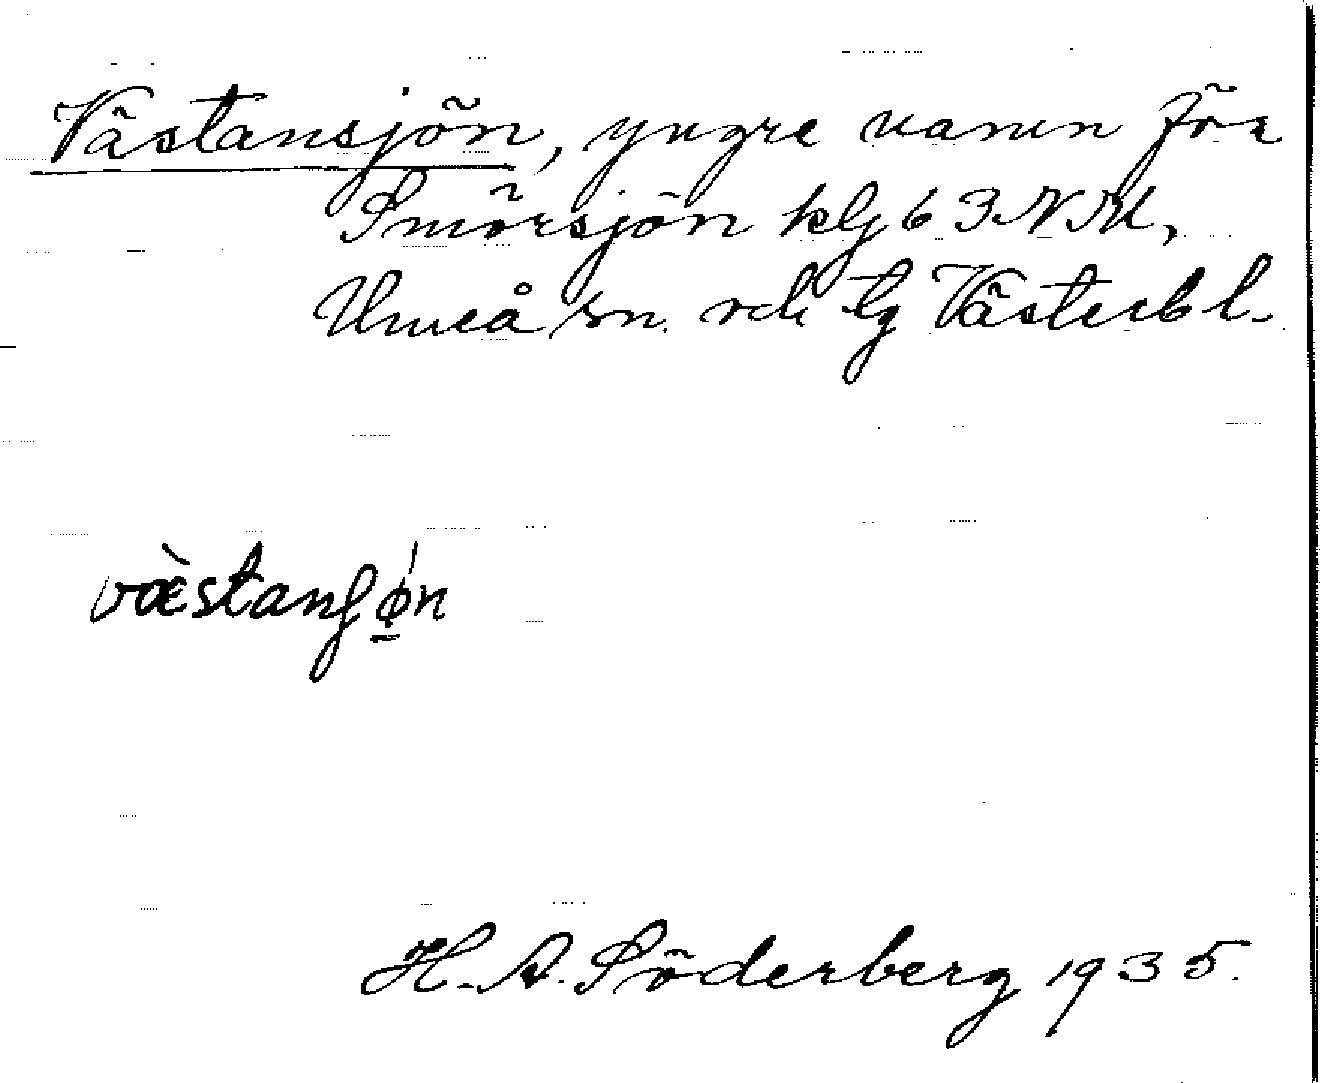 Västansjön, yngre namn för
Smörsjön klg 6 3 N M,
Umeå sn. och tg Västerbl.
væ̀stanʃǿ̱n
H. A. Söderberg 1935.